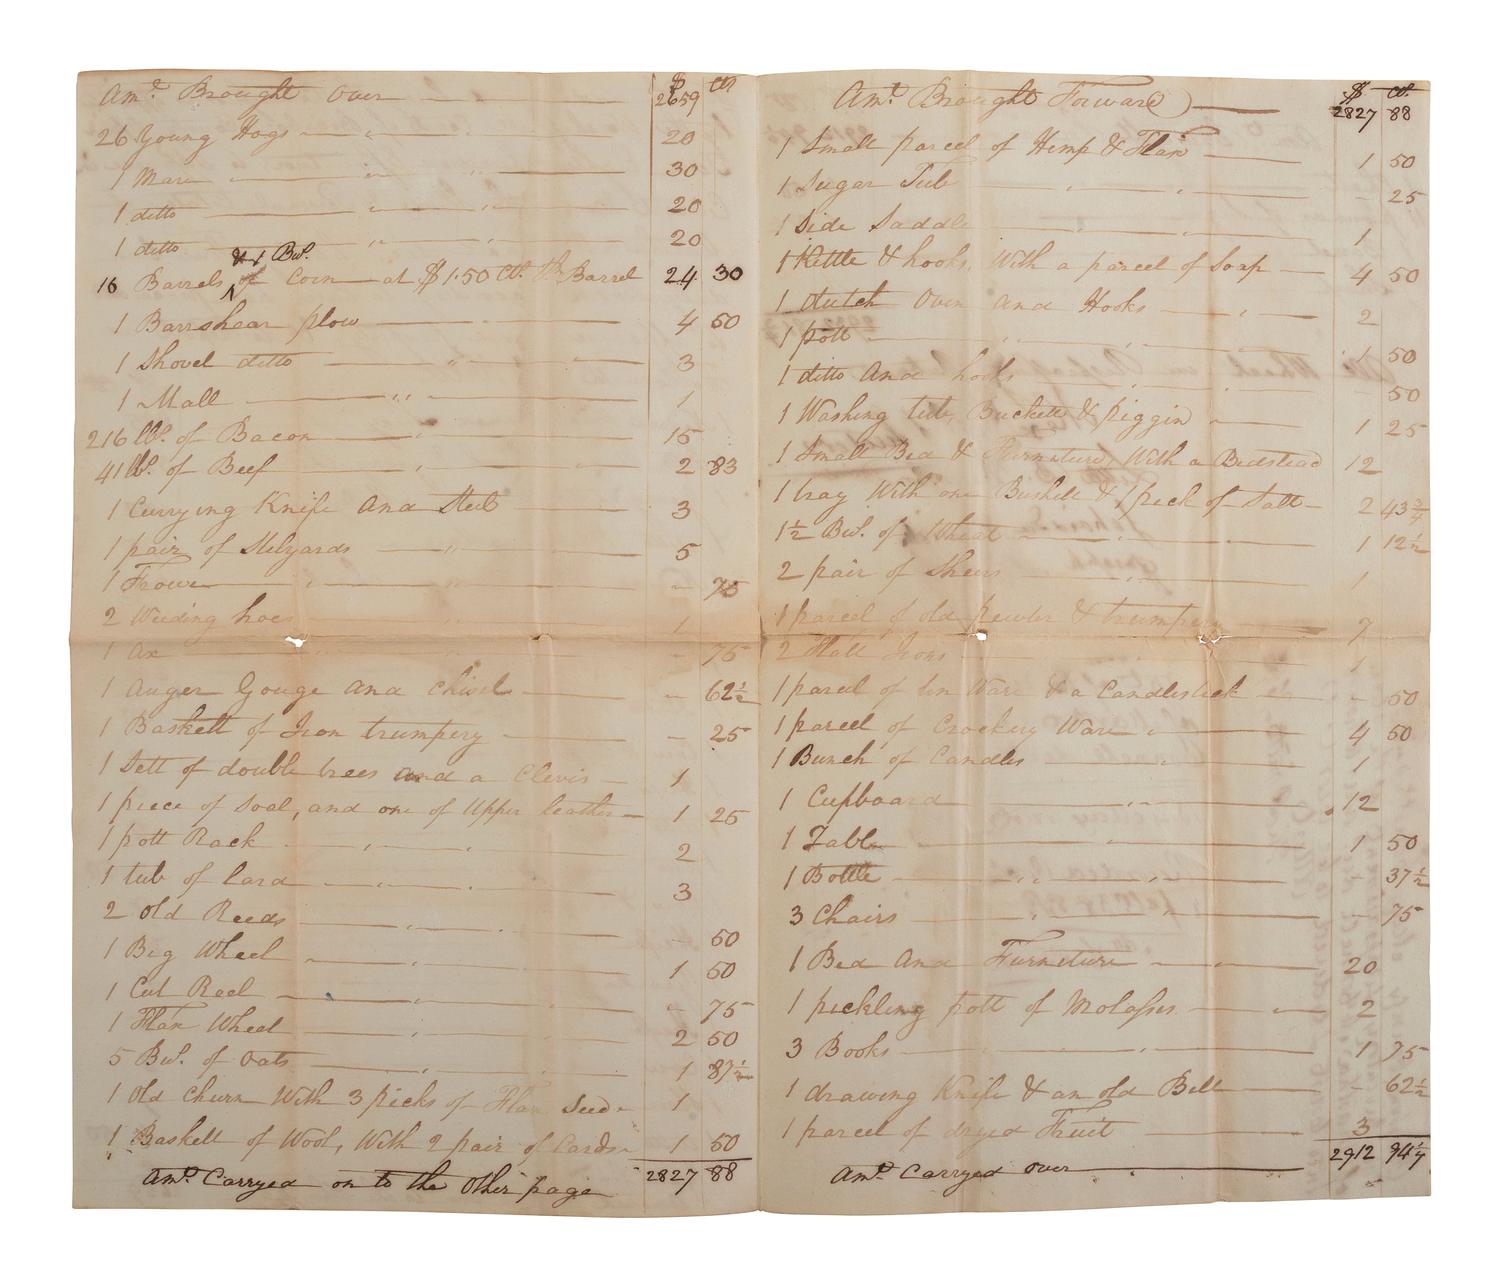 $ cts
Amt. Brought Over 2659
26 Young Hogs 20
1 Mare 30
1 ditto 20
1 ditto 20
& 1 Bul.
16 Barrels of Corn at $1.50 Cts. Barrel 24 30
1 Barrshear plow 4 50
1 Shovel ditto 3
1 Mall 1
216 lb. of Bacon 15
41 lb. of Beef 2 83
1 Currying Knife And Steel 3
1 pair of Stilyards 5
1 Frowe - 75
2 Weeding hoes 1
1 ax - 75
1 Auger Gouge and Chisel - 62½
1 Baskett of Iron trumpery - 25
1 Sett of double trees and a Clevis 1
1 piece of Soal, and one of Upper leather 1 25
1 pott Rack 2
1 tub of lard 3
2 old Reeds - 50
1 Big Wheel 1 50
1 Cut Reel - 75
1 Flax Wheel 2 50
5 Bul. of oats 1 87½
1 Old Churn With 3 pecks of Flax Seed 1
1 Baskett of Wool, With 2 pair of Cards 1 50
Amt. Carryed on to the Other page 2827 88
$ ct.
Amt. Brought Forward 2827 88
1 Small parcel of Hemp & Flax 1 50
1 Sugar Tub - 25
1 Side Saddle 1
1 Kettle & hooks, With a parcel of Soap 4 50
1 dutch Oven and Hooks 2
1 pott 1 50
1 ditto And hooks - 50
1 Washing tub, Buckett & piggin 1 25
1 Small Bed & Furneture, With a Bedstead 12
1 tray With one Bushell & 1 peck of Salt 2 43¾
1½ Bul. of Wheat 1 12½
2 pair of Shears 1
1 parcel of old pewter & trumpery 7
2 Flatt Irons 1
1 parcel of tin Ware & a Candlestick - 50
1 parcel of Crockery Ware 4 50
1 Bunch of Candles 1
1 Cupboard 12
1 Table 1 50
1 Bottle - 37½
3 Chairs - 75
1 Bed And Furneture 20
1 pickling pott of Molasses 2
3 Books 1 75
1 drawing Knife & an old Bell - 62½
1 parcel of dryed Fruit 3
Amt. Carryed over 2912 94¼